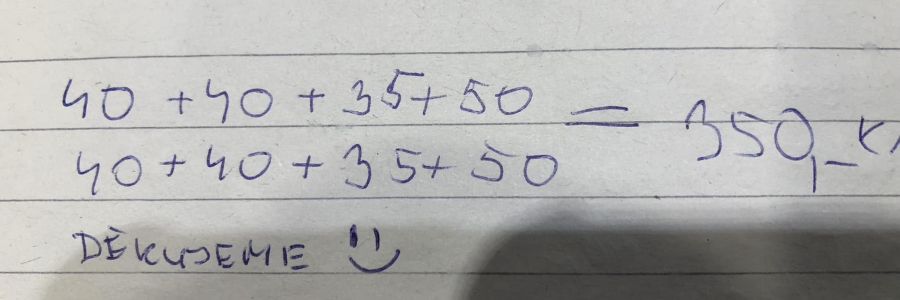 40 + 40 + 35 + 50 = 350,- K
40 + 40 + 35 + 50
DĚKUJEME :)